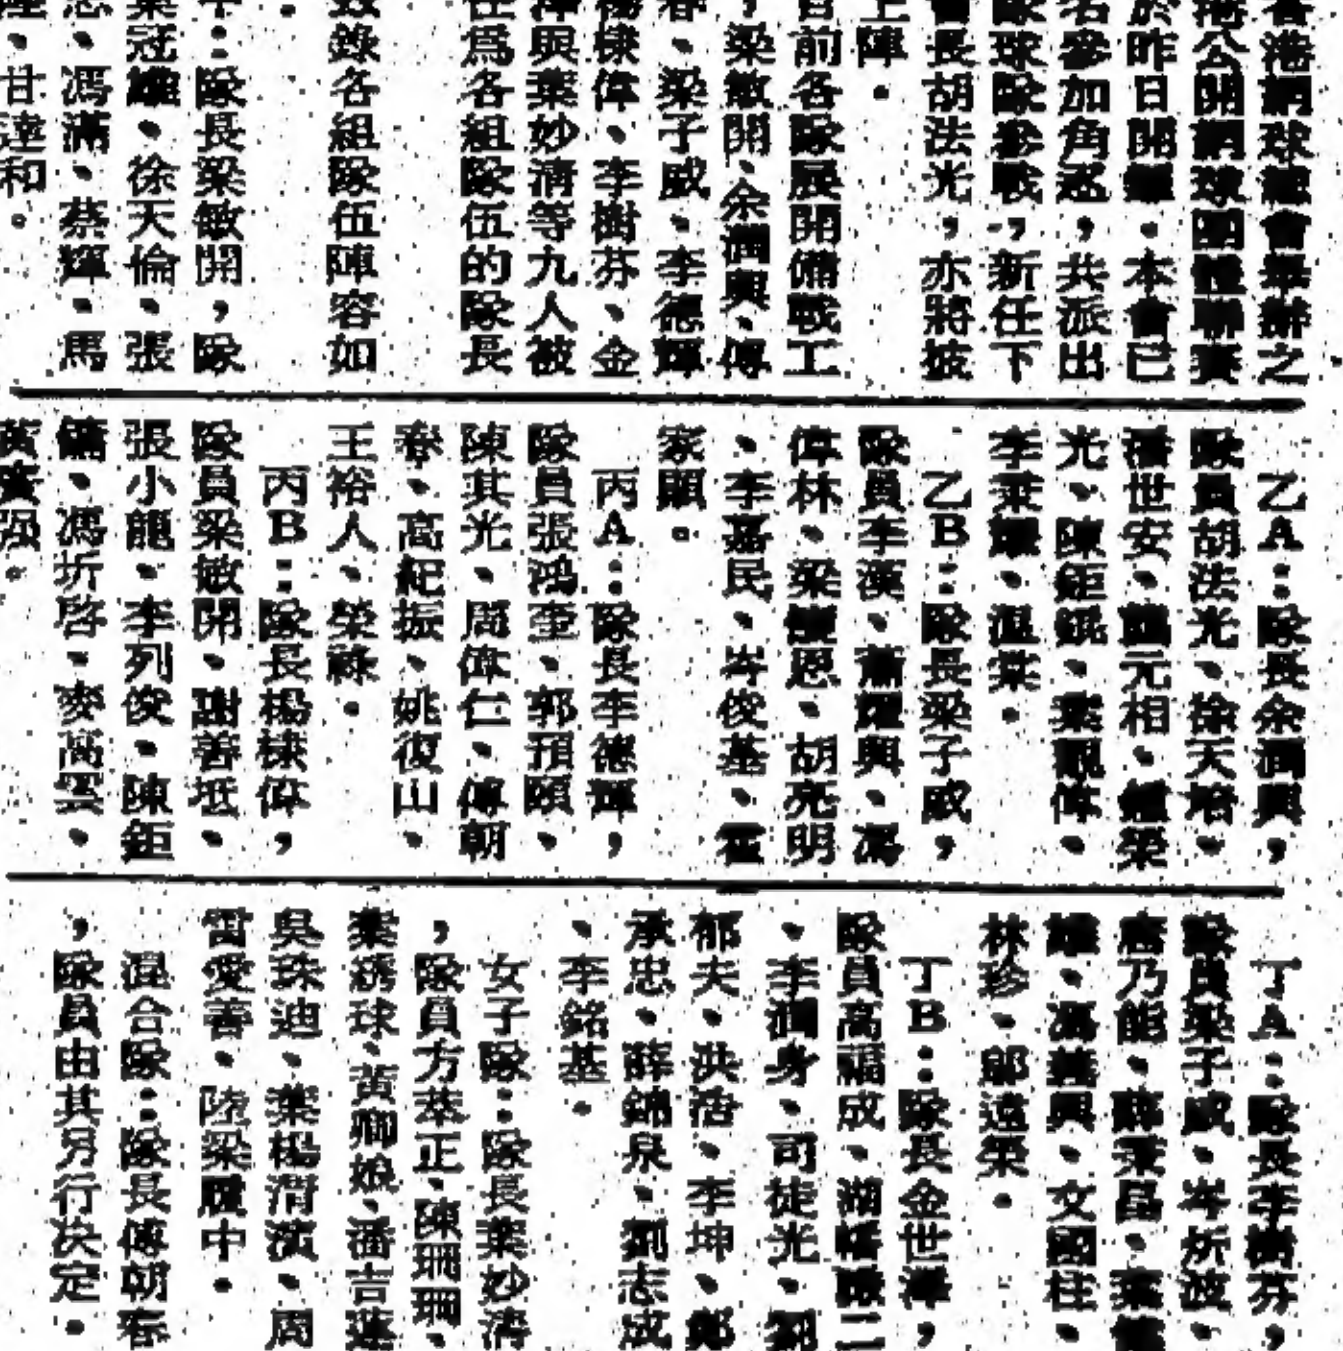 香港網球總會舉辦之
港公開網球團體聯賽
於昨日開鑼。本會已
名參加角逐，共派出
隊球隊參戰，新任下
會長胡法光，亦將披
上陣。
目前各隊展開備戰工
，梁敏開、余潤興、傅
春、梁子威、李德輝
楊棣偉、李樹芬、金
澤與葉妙清等九人被
任爲各組隊伍的隊長
。
茲錄各組隊伍陣容如
：
甲：隊長梁敏開，隊
葉冠雄、徐天倫、張
志、馮滿、蔡輝、馬
陞、甘達和。
乙A：隊長余潤興，
隊員胡法光、徐天培、
潘世安、魏元相、鍾榮
光、陳鉅銳、葉觀偉、
李葉耀、溫棠。
乙B：隊長梁子威，
隊員李漢、蕭躍興、馮
偉林、梁懷恩、胡亮明
、李嘉民、岑俊基、霍
家顯。
丙A：隊長李德輝，
隊員張鴻奎、郭預頤、
陳其光、周偉仁、傅朝
春、高紀振、姚復山、
王裕人、榮祿。
丙B：隊長楊棣偉，
隊員梁敏開、謝善坻、
張小龍、李列俊、陳鉅
鏞、馮圻啓、麥高雲、
黃實强。
丁A：隊長李樹芬，
隊員梁子威、岑所波、
唐乃能、薛秉昌、葉
雄、馮善興、文國柱、
林珍、鄔遠榮。
丁B：隊長金世澤，
隊員高福成、湖二
、李潤身、司徒光、劉
郁夫、洪浩、李坤、鄭
承忠、薛錦泉、劉志成
、李銘基。
女子隊：隊長葉妙清
，隊員方萃正、陳珊珊、
葉綉球、黃卿娘、潘吉蓮
吳珠迪、葉楊渭濱、周
雷愛善、陸梁履中。
混合隊：隊長傅朝春
，隊員由其另行決定。